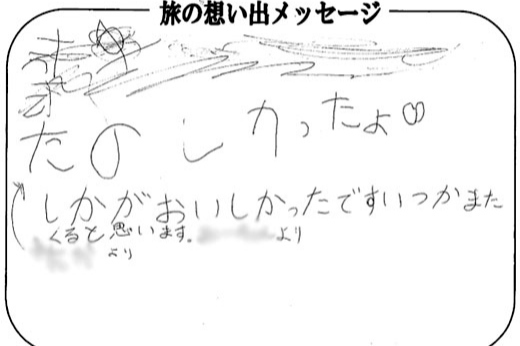 旅の想い出メッセージ
たのしかったよ
しかがおいしかったですいつかまた
くると思います。
より
より